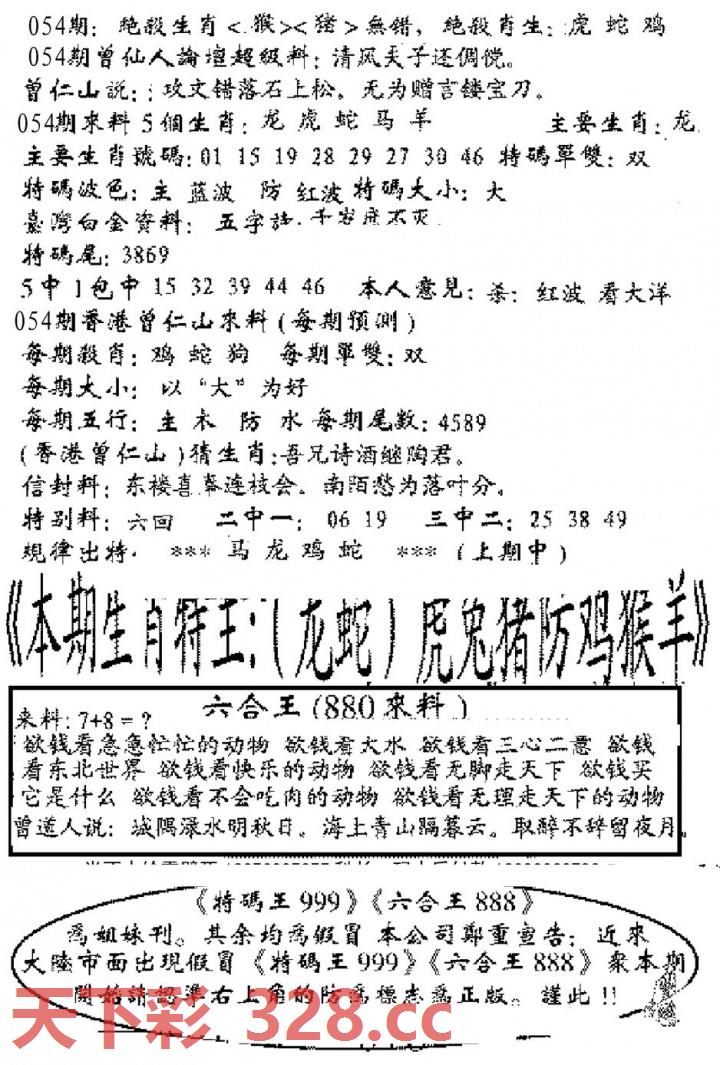 054期：絶殺生肖<猴><猪>無錯，絶殺肖生：虎 蛇 鸡
054期曾仙人論壇超級料：清风天子还倜傥。
曾仁山説：：攻文错落石上松，无为赠言镂宝刀。
054期來料5個生肖：龙 虎 蛇 马 羊 主要生肖：龙
主要生肖號碼：01 15 19 28 29 27 30 46 特碼單雙：双
特碼波色：主 蓝波 防 红波 特碼大小：大
臺灣白金資料： 五字話
特碼尾：3869
5中1包中 15 32 39 44 46 本人意見：杀：红波 看大洋
054期香港曾仁山來料(每期預測)
每期殺肖：鸡 蛇 狗 每期單雙：双
每期大小：以“大”为好
每期五行：主 木 防 水 每期尾数：4589
(香港曾仁山)猜生肖：吾兄诗酒继陶君。
信封料：东楼喜幕连枝会。南陌愁为落叶分。
特别料：六回 二中一：06 19 三中二：25 38 49
規律出特· *** 马 龙 鸡 蛇 *** (上期中)
《本期生肖特王：(龙蛇)虎兔猪防鸡猴羊》
六合王(880來料)
来料：7+8=?
欲钱看急急忙忙的动物 欲钱看大水 欲钱看三心二意 欲钱
看东北世界 欲钱看快乐的动物 欲钱看无脚走天下 欲钱买
它是什么 欲钱看不会吃肉的动物 欲钱看无理走天下的动物
曾道人说：城隅渌水明秋日。海上青山隔暮云。取醉不辞留夜月。
《特碼王999》《六合王888》
為姐妹刊。其余均為假冒 本公司鄭重宣告：近來
大陸市面出現假冒《特碼王999》《六合王888》衆本期
開始請認準右上角的防爲標志為正版。謹此!!
天下彩 328.cc